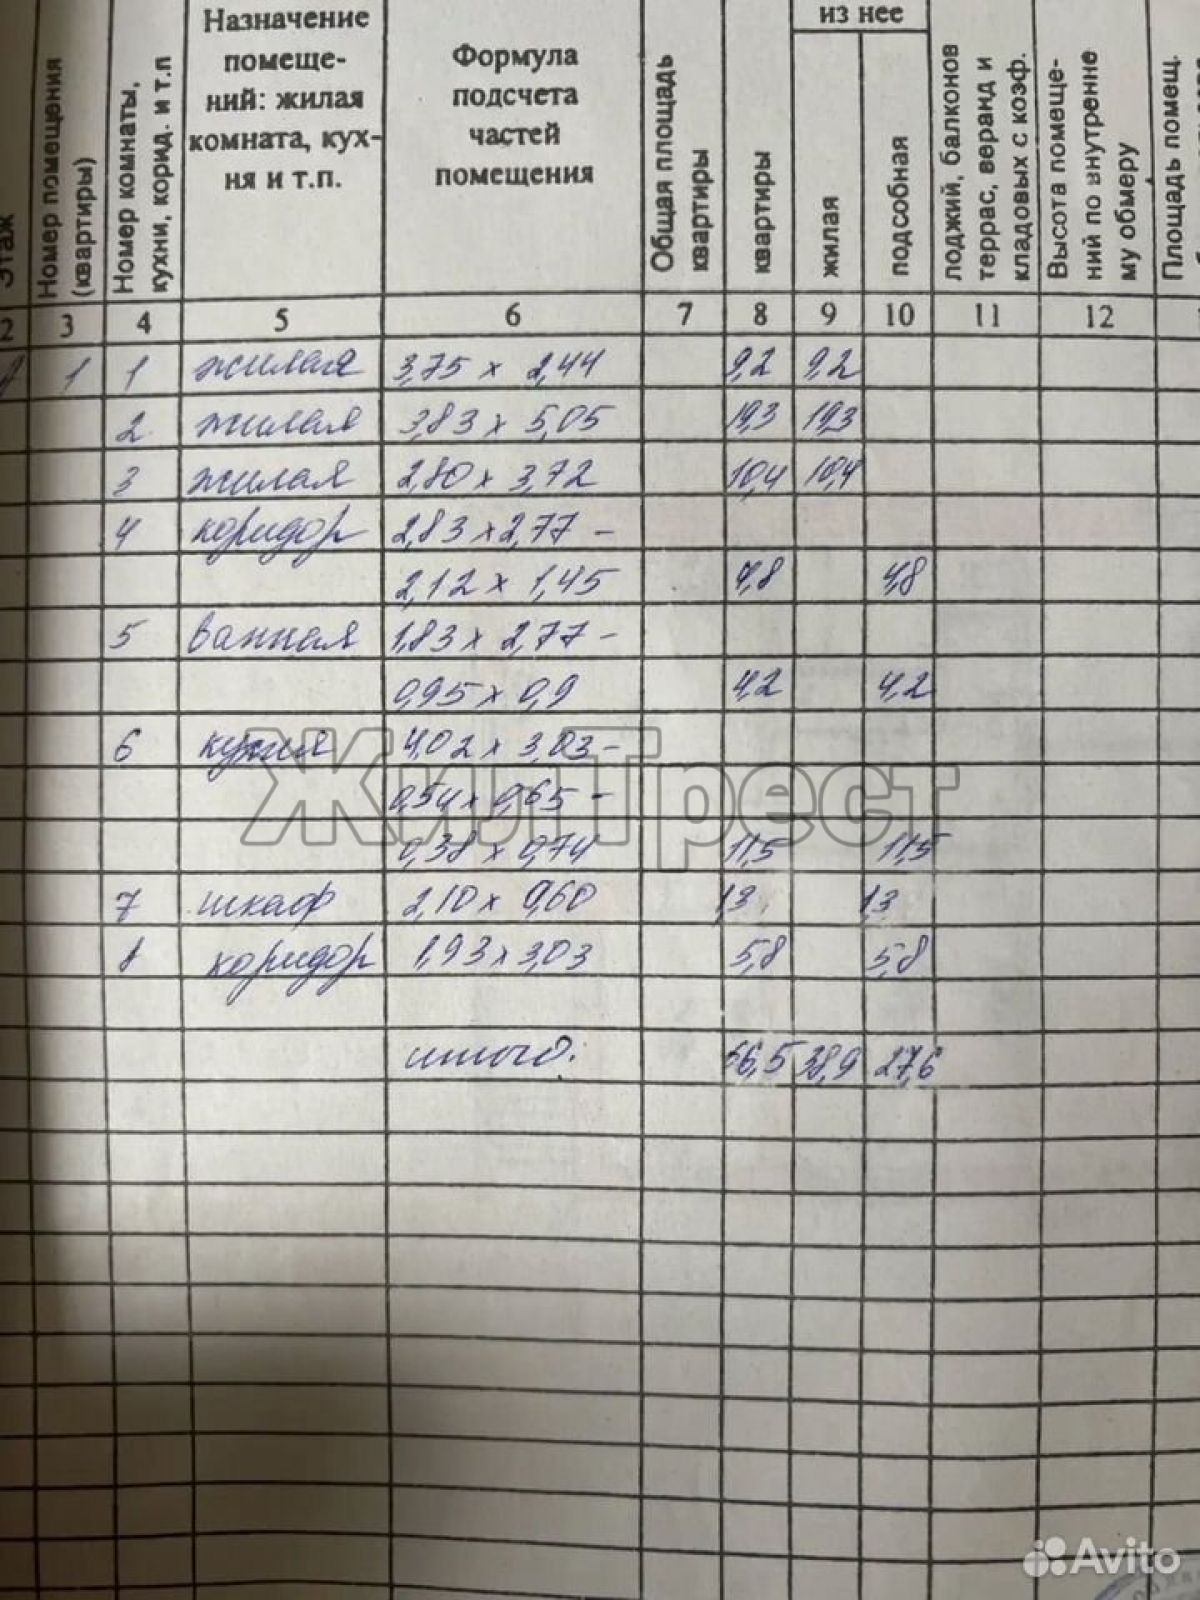 из нее
Этаж
Номер помещения
(квартиры)
Номер комнаты,
кухни, корид. и т.п
Назначение
помеще-
ний: жилая
комната, кух-
ня и т.п.
Формула
подсчета
частей
помещения
Общая площадь
квартиры
квартиры
жилая
подсобная
лоджий, балконов
террас, веранд и
кладовых с коэф.
Высота помеще-
ний по внутренне
му обмеру
Площадь помещ.
2 3 4 5 6 7 8 9 10 11 12
1 1 жилая 3,75 x 2,44 9,2 9,2
2 жилая 3,83 x 5,05 19,3 19,3
3 жилая 2,80 x 3,72 10,4 10,4
4 коридор 2,83 x 2,77 -
2,12 x 1,45 4,8 4,8
5 ванная 1,83 x 2,77 -
0,95 x 0,9 4,2 4,2
6 кухня 4,02 x 3,03 -
0,54 x 0,65 -
0,38 x 0,74 11,5 11,5
7 шкаф 2,10 x 0,60 1,3 1,3
8 коридор 1,93 x 3,03 5,8 5,8
итого: 66,5 38,9 27,6
ЖилТрест
Avito